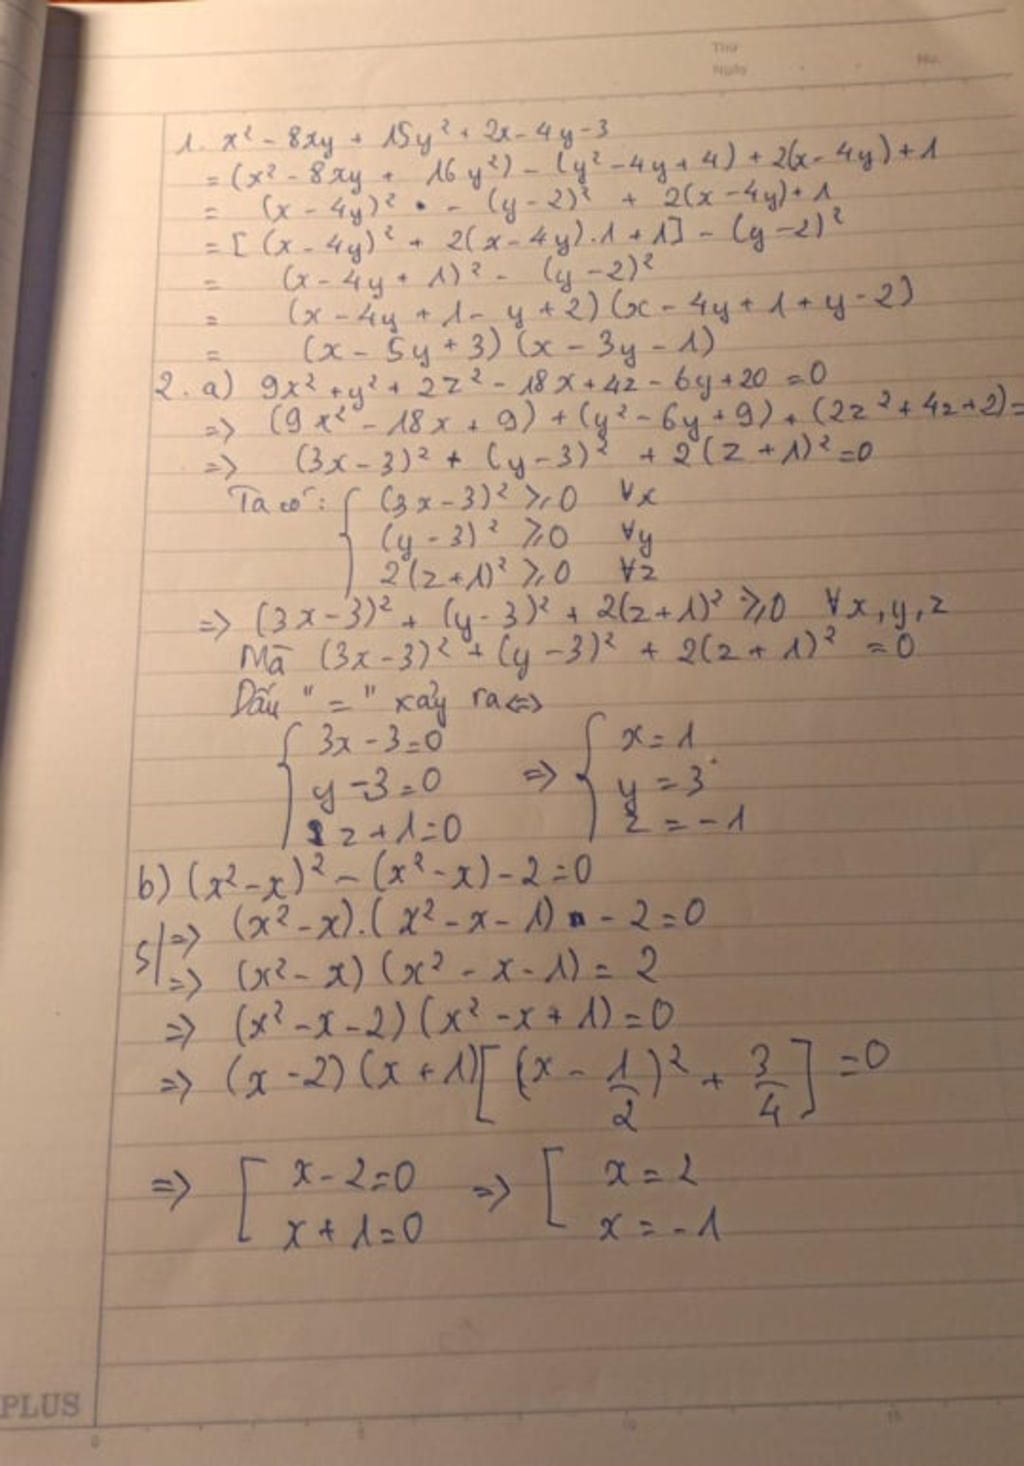 Thứ
Ngày
No.
1. x² - 8xy + 15y² + 2x - 4y - 3
= (x² - 8xy + 16y²) - (y² - 4y + 4) + 2(x - 4y) + 1
= (x - 4y)² - (y - 2)² + 2(x - 4y) + 1
= [(x - 4y)² + 2(x - 4y).1 + 1] - (y - 2)²
= (x - 4y + 1)² - (y - 2)²
= (x - 4y + 1 - y + 2)(x - 4y + 1 + y - 2)
= (x - 5y + 3)(x - 3y - 1)
2. a) 9x² + y² + 2z² - 18x + 4z - 6y + 20 = 0
=> (9x² - 18x + 9) + (y² - 6y + 9) + (2z² + 4z + 2) =
=> (3x - 3)² + (y - 3)² + 2(z + 1)² = 0
Ta có: { (3x - 3)² ⩾ 0 ∀x
(y - 3)² ⩾ 0 ∀y
2(z + 1)² ⩾ 0 ∀z
=> (3x - 3)² + (y - 3)² + 2(z + 1)² ⩾ 0 ∀x, y, z
Mà (3x - 3)² + (y - 3)² + 2(z + 1)² = 0
Dấu "=" xảy ra <=>
{ 3x - 3 = 0 => { x = 1
y - 3 = 0 y = 3
z + 1 = 0 z = -1
b) (x² - x)² - (x² - x) - 2 = 0
S| => (x² - x).(x² - x - 1) - 2 = 0
=> (x² - x)(x² - x - 1) = 2
=> (x² - x - 2)(x² - x + 1) = 0
=> (x - 2)(x + 1)[(x - 1/2)² + 3/4] = 0
=> [ x - 2 = 0 => [ x = 2
x + 1 = 0 x = -1
PLUS
0 5 10 15